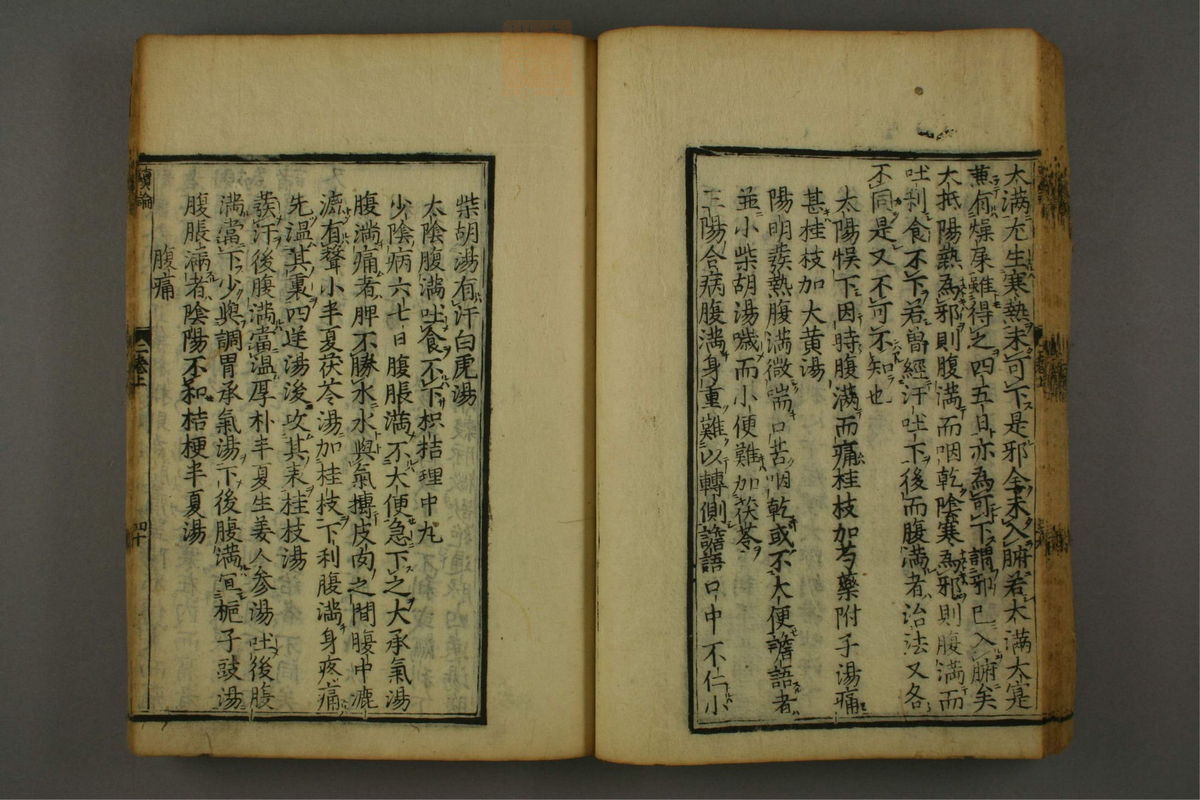 太滿尤生寒熱未可下是邪全未入腑若太滿太寔
兼有燥屎雖得之四五日亦為可下謂邪已入腑矣
大抵陽熱為邪則腹滿而咽乾陰寒為邪則腹滿而
吐利食不下若曽經汗吐下後而腹滿者治法又各
不同是又不可不知也
太陽悮下因時腹滿而痛桂枝加芍藥附子湯痛
甚桂枝加大黄湯
陽明發熱腹滿微喘口苦咽乾或不大便譫語者
並小柴胡湯嘰而小便難加茯苓
三陽合病腹滿身重難以轉側譫語口中不仁小
柴胡湯有汗白虎湯
太陰腹滿吐食不下枳桔理中丸
少陰病六七日腹脹滿不大便急下之大承氣湯
腹滿痛者脾不勝水水與氣摶皮肉之間腹中漉
漉有聲小半夏茯苓湯加桂枝下利腹滿身疼痛
先温其裏四逆湯後攻其表桂枝湯
發汗後腹滿當温厚朴半夏生姜人参湯吐後腹
滿當下少與調胃承氣湯下後腹滿宜梔子豉湯
腹脹滿者陰陽不和桔梗半夏湯
腹痛
論
二巻上
四十